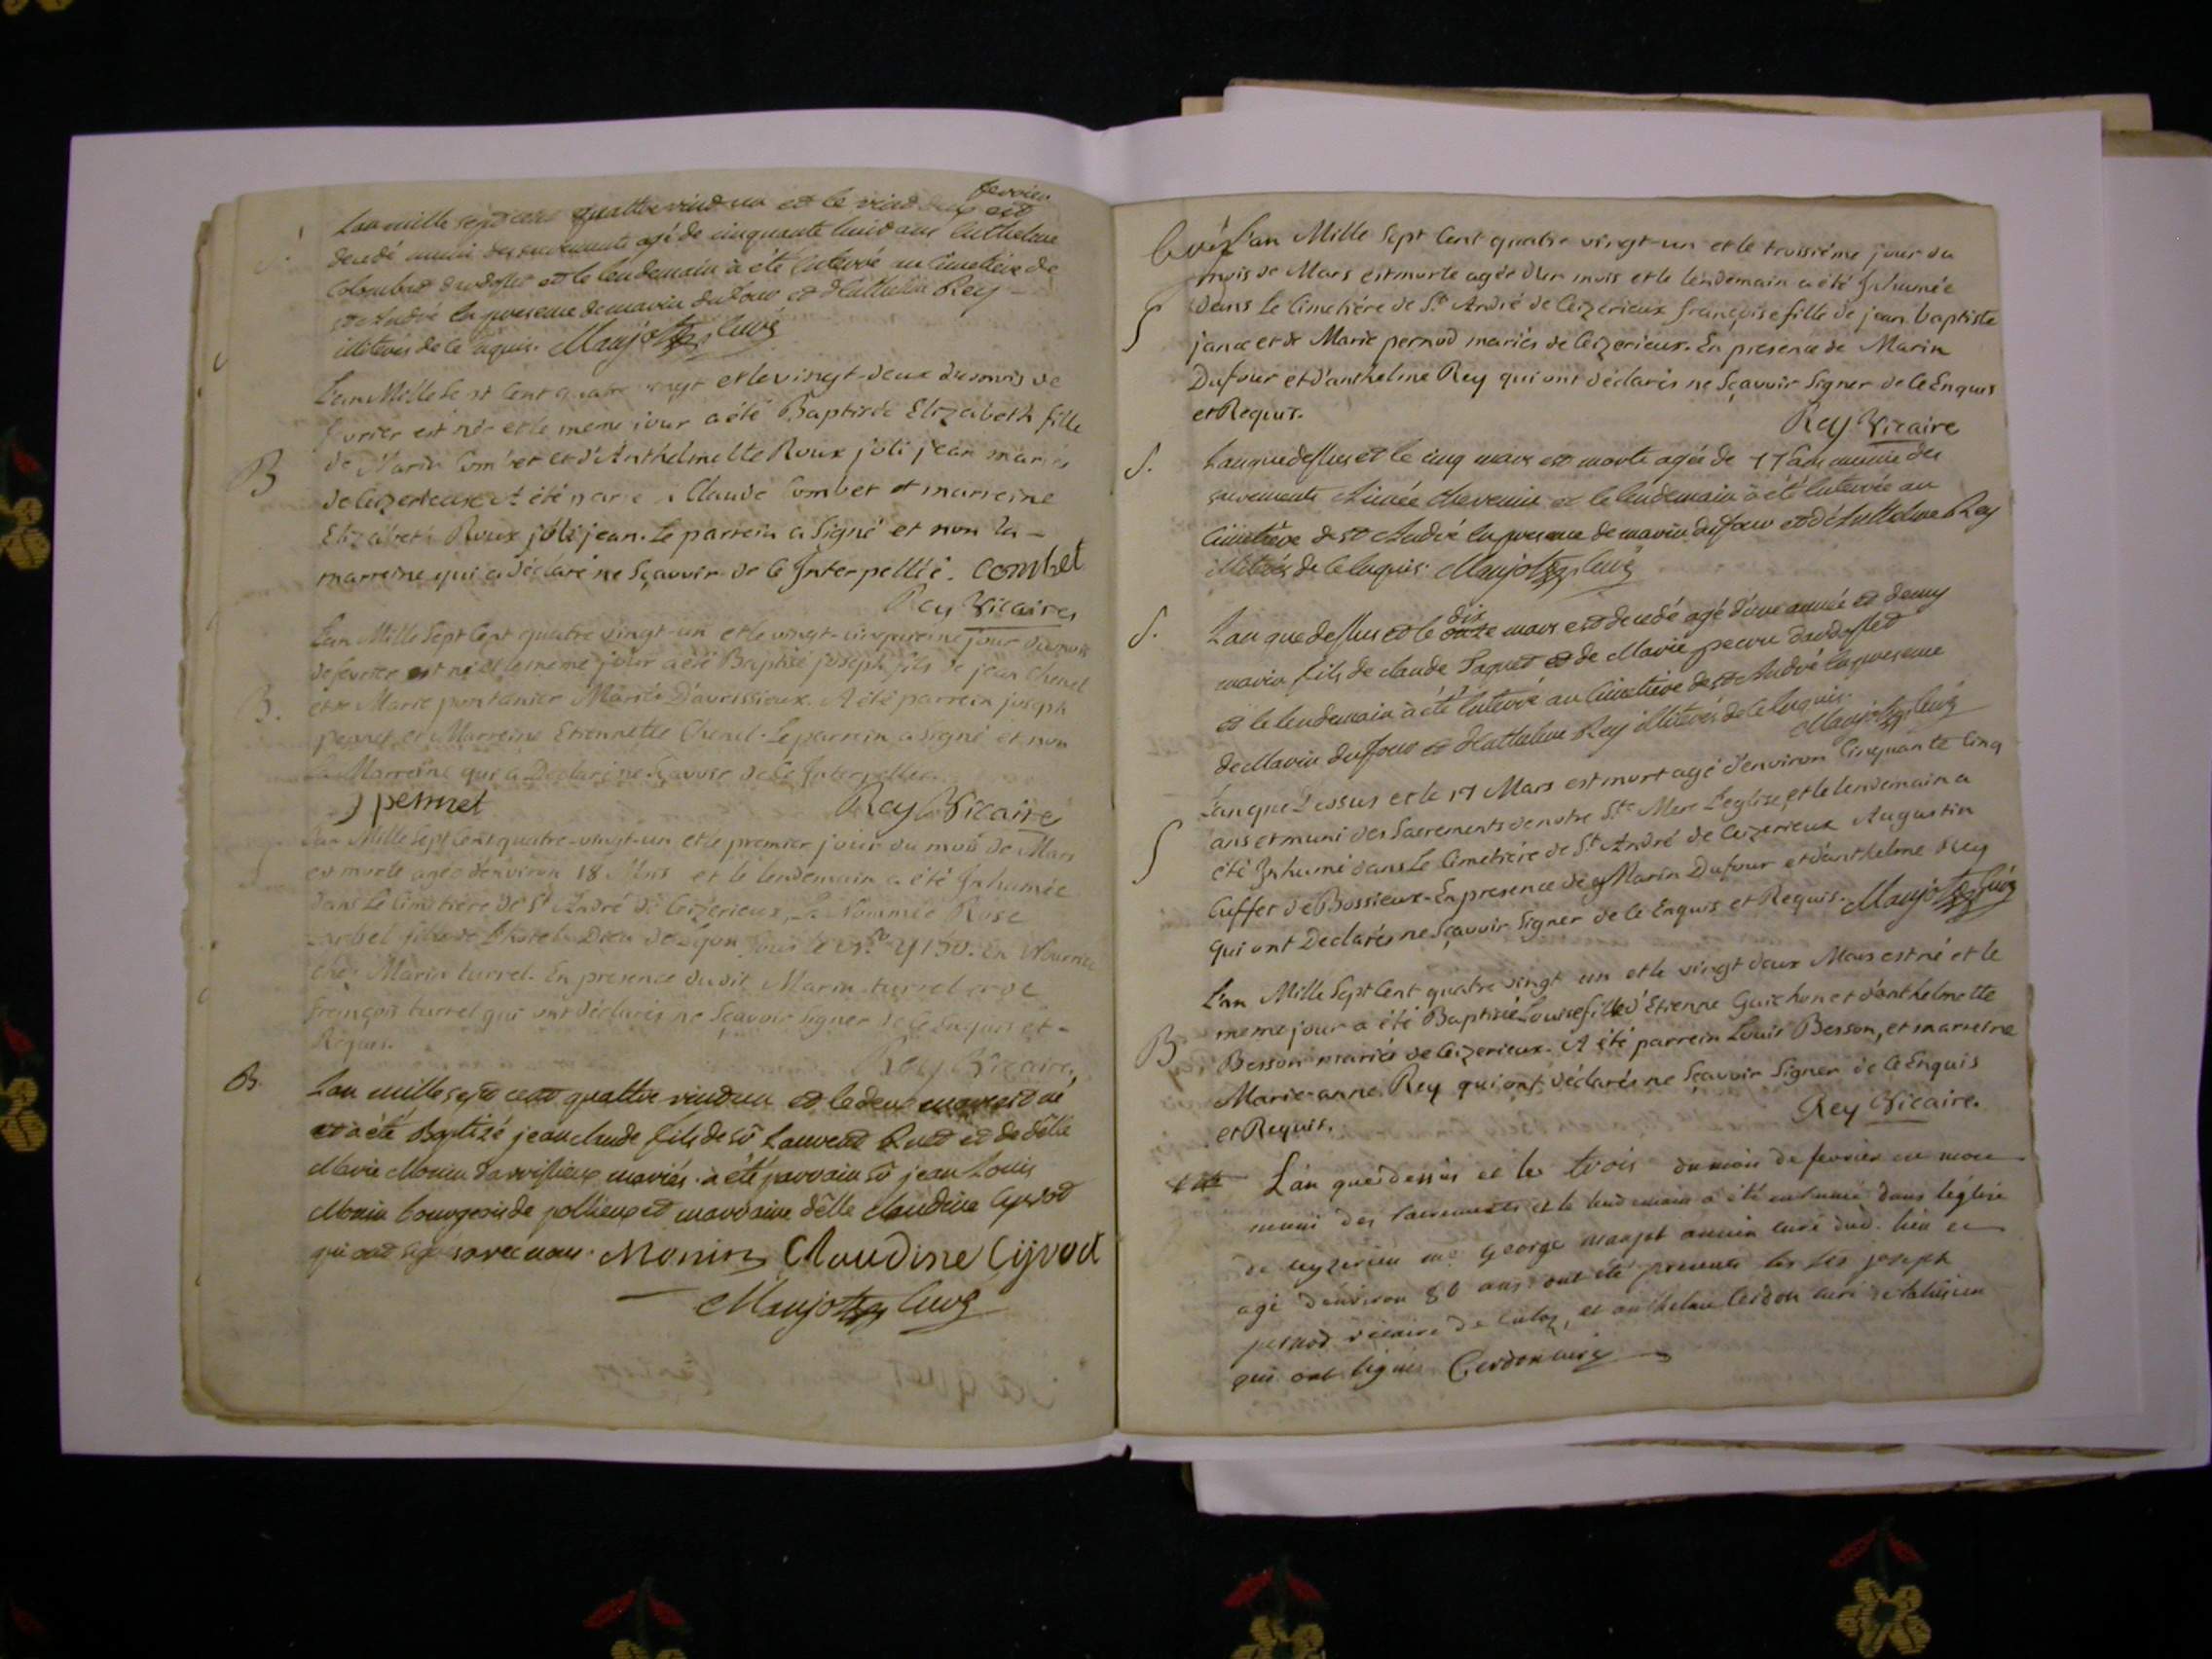 fevrier
L'an mille sept cent quattre vint un et le vint deux est
decedé muni des sacrements agé de cinquante huit ans Anthelme
Colombet d'avdosset et le lendemain à été enterré au cimetière de
st André en presence de marin dufour et d'Anthelme Rey
illiterés de ce enquis. Maujot curé
L'an Mille Sept Cent quatre vingt et le vingt-deux du mois de
fevrier est née et le meme jour a été Baptisée Elizabeth fille
B de Marin Combet et d'Anthelmette Roux joli jean mariés
de Ceizerieux A été parrein Claude Combet et marreine
Elizabeth Roux joli jean. Le parrein a Signé et non la -
marreine qui a déclaré ne Sçavoir de ce Interpellée. combet
Rey Vicaire
L'an Mille Sept Cent quatre vingt-un et le vingt-cinquieme jour du mois
de fevrier est né et le meme jour a été Baptisé joseph fils de jean Chenel
et de Marie pontanier Mariés D'avrissieux. A été parrein joseph
B. pernet et Marreine Etiennette Chenel. Le parrein a Signé et non
la Marreine qui a Déclaré ne Sçavoir de ce Interpellée.
j pernet Rey Vicaire
L'an Mille Sept Cent quatre-vingt-un et le premier jour du mois de Mars
est morte agée d'environ 18 Mois et le lendemain a été Inhumée
S dans Le Cimetiere de St André de Ceizerieux, La Nommée Rose
fille de L'hotel-Dieu de Lyon sous le N.ro 4150. En Nourrice
chez Marin turrel. En presence dudit Marin turrel et de
François turrel qui ont déclarés ne Sçavoir Signer de ce Enquis et -
Requis.
Rey Vicaire.
B L'an mille sept cent quattre vint un et le deux mars est né
et à été Baptizé jean claude fils de sr Laurent Ruet et de dêlle
Marie Monin d'avrissieux mariés. à été parrain sr jean Louis
Monin bourgeois de pollieux et marraine dêlle Claudine Cyvot
qui ont signés avec nous. Monin Claudine Cijvoct
Maujot curé
L'an Mille Sept Cent quatre vingt-un et le troisiéme jour du
mois de Mars est morte agée d'un mois et le lendemain a été Inhumée
S dans Le Cimetiére de St André de Ceizerieux françoise fille de jean baptiste
janex et de Marie pernod mariés de Ceizerieux. En presence de Marin
Dufour et d'anthelme Rey qui ont déclarés ne Sçavoir Signer de ce Enquis
et Requis.
Rey Vicaire
S. L'an que dessus et le cinq mars est morte agée de 77 ans munie des
sacrements Aimée chevenin et le lendemain à été enterrée au
Cimetière de st André en presence de marin dufour et d'Anthelme Rey
illiterés de ce enquis. Maujot curé
dix
S. L'an que dessus et le onze mars est decedé agé d'une année et demy
marin fils de claude Jaquet et de Marie d'avdosset
et le lendemain à été enterré au Cimetière de st André en presence
de Marin dufour et d'Anthelme Rey illiterés de ce enquis.
Maujot curé
L'an que Dessus et le 17 Mars est mort agé d'environ Cinquante Cinq
ans et muni des Sacrements de notre Ste Mere L'eglise, et le lendemain a
S été Inhumé dans Le Cimetiére de St André de Ceizerieux Augustin
Cuffet de Bossieux. En presence de Marin Dufour et d'anthelme Rey
qui ont Déclarés ne Sçavoir Signer de ce Enquis et Requis. Maujot curé
L'an Mille Sept Cent quatre vingt un et le vingt deux Mars est né et le
meme jour a été Baptisée Louise fille d'Etienne Guichon et d'anthelmette
B Besson mariés de Ceizerieux. A été parrein Louis Besson, et marreine
Marie-anne Rey qui ont déclarés ne Sçavoir Signer de ce Enquis
et Requis.
Rey Vicaire.
L'an que dessus et le trois du mois de fevrier est mort
muni des sacrements et le lendemain a été enhumé dans l'église
de ceyzerieu me George maujot ancien curé dud. lieu et
agé d'environ 86 ans ont été presents les srs joseph
pernod vicaire de culoz, et anthelme Cerdon curé
qui ont signés Cerdon curé